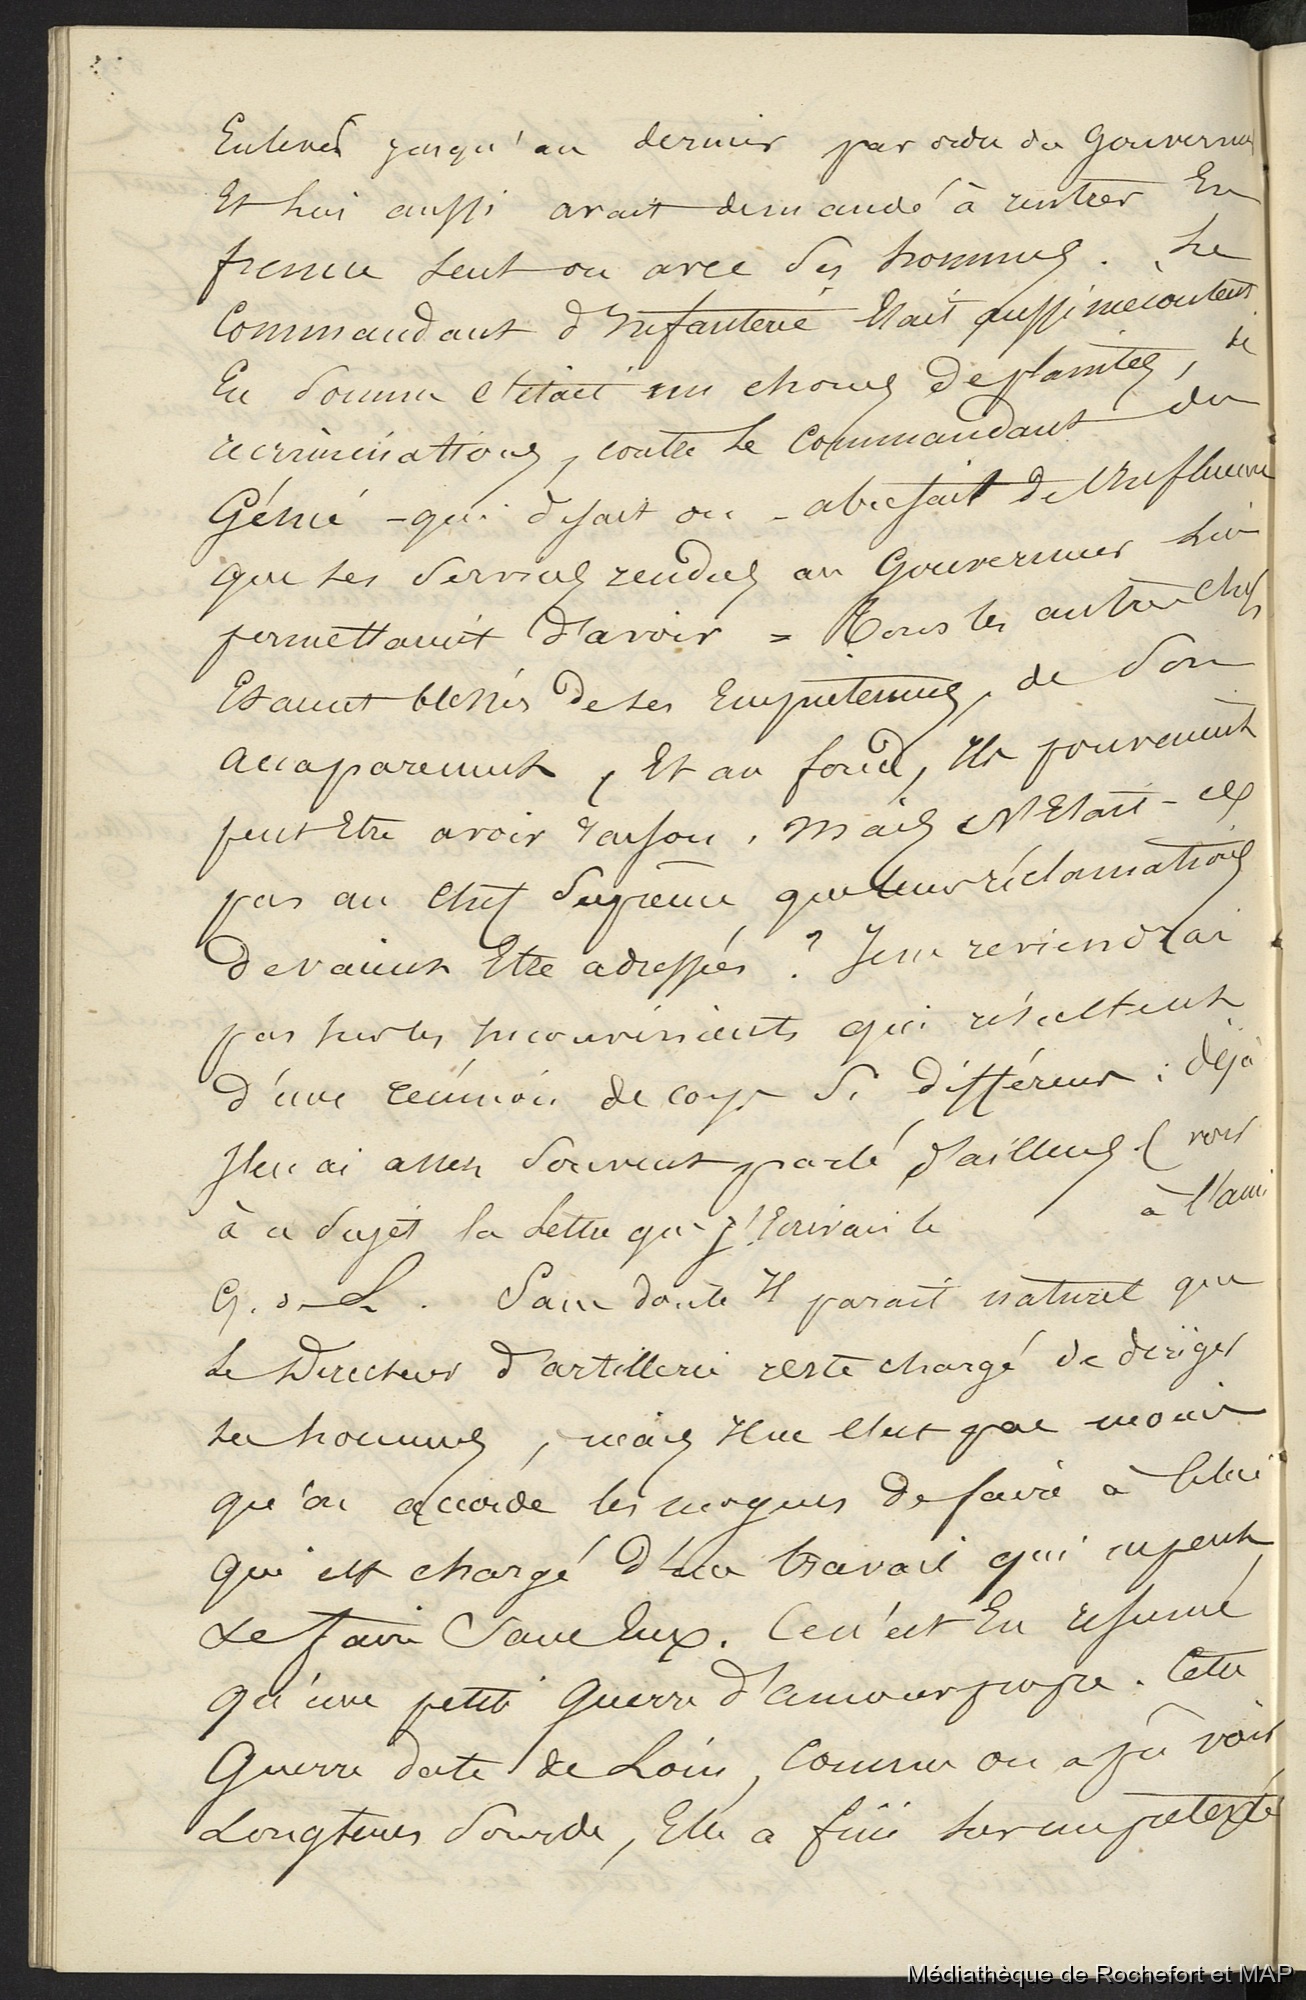 Enlevés jusqu'au dernier par ordre du Gouverneur
Et lui aussi avait demandé à rentrer En
france seul ou avec ses hommes. Le
Commandant d'Infanterie Etait aussi mécontent
En somme c'était un chorus de plaintes, de
recriminations, contre le Commandant du
Génie - qui disait on - abusait de l'Influence
que les services rendus au Gouverneur Lui
permettaient d'avoir = Tous les autres chefs
Etaient blessés de ses Empietements, de son
accaparement, Et au fond, Ils pouvaient
peut Etre avoir raison. Mais N'Etait-ce
pas au Chef Suprême que leurs réclamations
devaient Etre adressées ? Je ne reviendrai
pas sur les Inconvénients qui résultent
d'une réunion de corps si différents : déjà
J'en ai assez souvent parlé d'ailleurs. (voir
à ce sujet la Lettre que j'Ecrivais le à l'ami
G. de L. Sans doute Il parait naturel que
Le Directeur d'artillerie reste chargé de diriger
ses hommes, mais Il ne l'est pas moins
qu'on accorde les moyens de faire à Celui
qui est chargé d'un travail qui ne peut
se faire Sans Eux. Ce n'est En résumé
qu'une petite guerre d'amour propre. Cette
Guerre date de Loin, Comme on a pu voir
Longtemps Sourde, Elle a fini sur un prétexte
Médiathèque de Rochefort et MAP